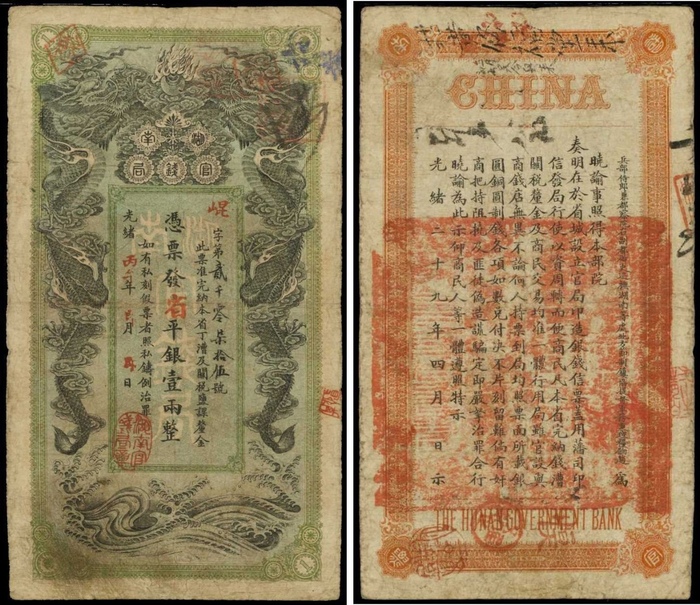 湖南
官錢局
崐字第貳千零柒拾伍號
此票准完納本省丁漕及關稅鹽課釐金
憑票發省平銀壹兩整
如有私刻假票者照私鑄例治罪
光緒丙午年 月 日
CHINA
曉諭事照得本部院
奏明在於省城設立官局印造銀錢信票蓋用藩司印
信發局行使以資周轉而便商民凡本省完納錢漕
關稅釐金及商民交易均准一體行用局雖官設與
商錢店無異不論何人持票到局均照票面所載銀
圓銅圓制錢各項如數兌付決不片刻留難倘有奸
商把持阻撓及匪徒偽造謊騙定即嚴拏治罪合行
曉諭為此示仰商民人等一體遵照特示
光緒二十九年四月 日示
THE HUNAN GOVERNMENT BANK